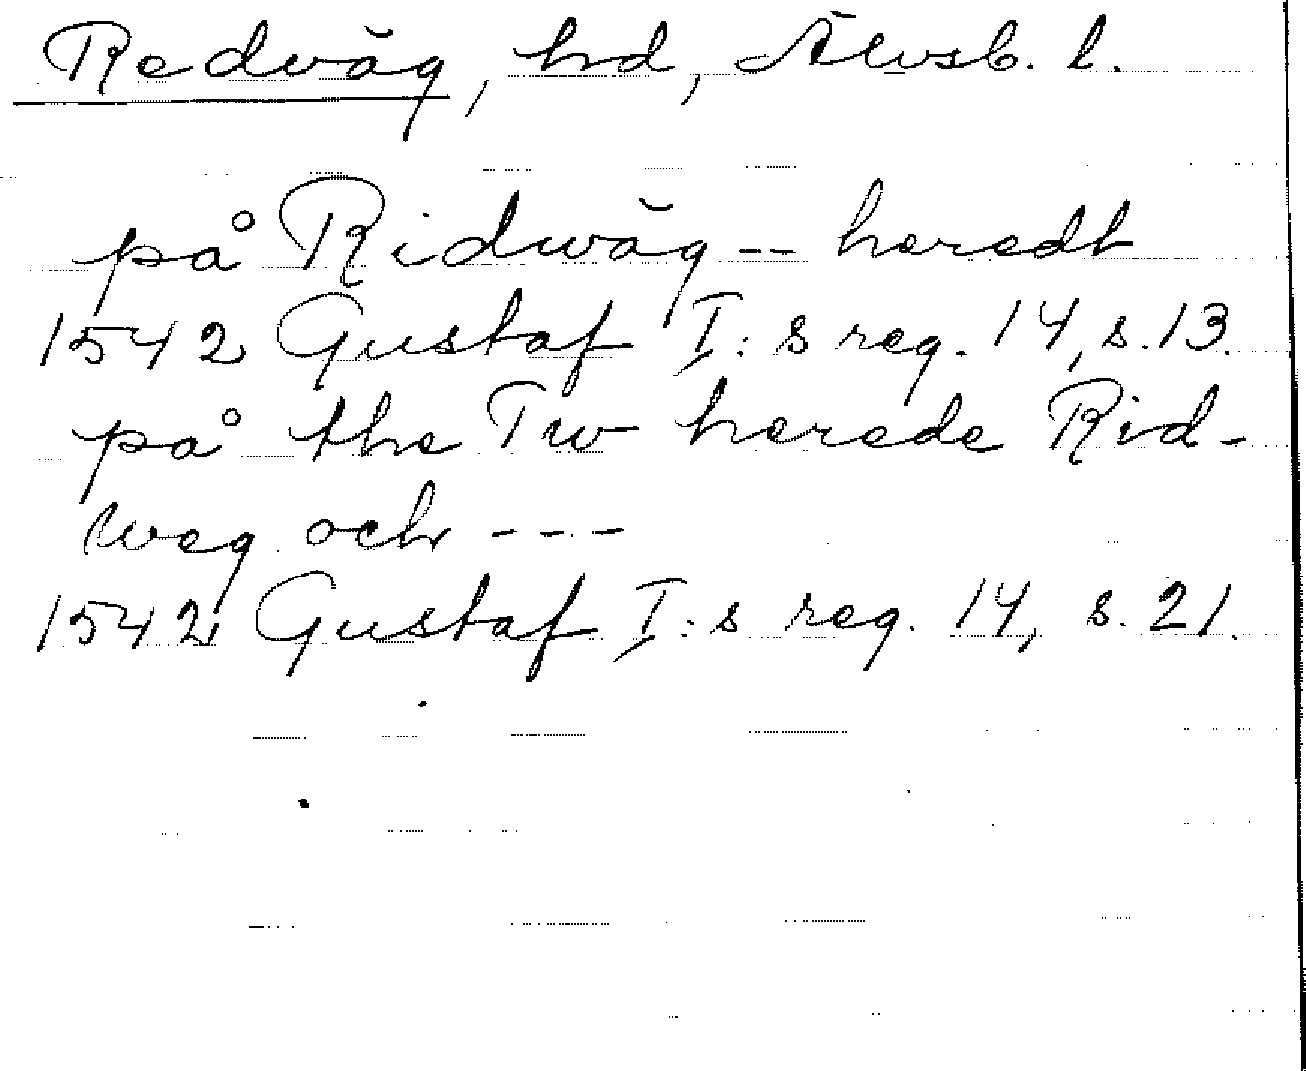 Redwäg, hd, Älvsb. l.
på Ridwäg -- heredt
1542 Gustaf I:s reg. 14, s. 13.
på the Tw herede Rid-
weg och ---
1542 Gustaf I:s reg. 14, s. 21.